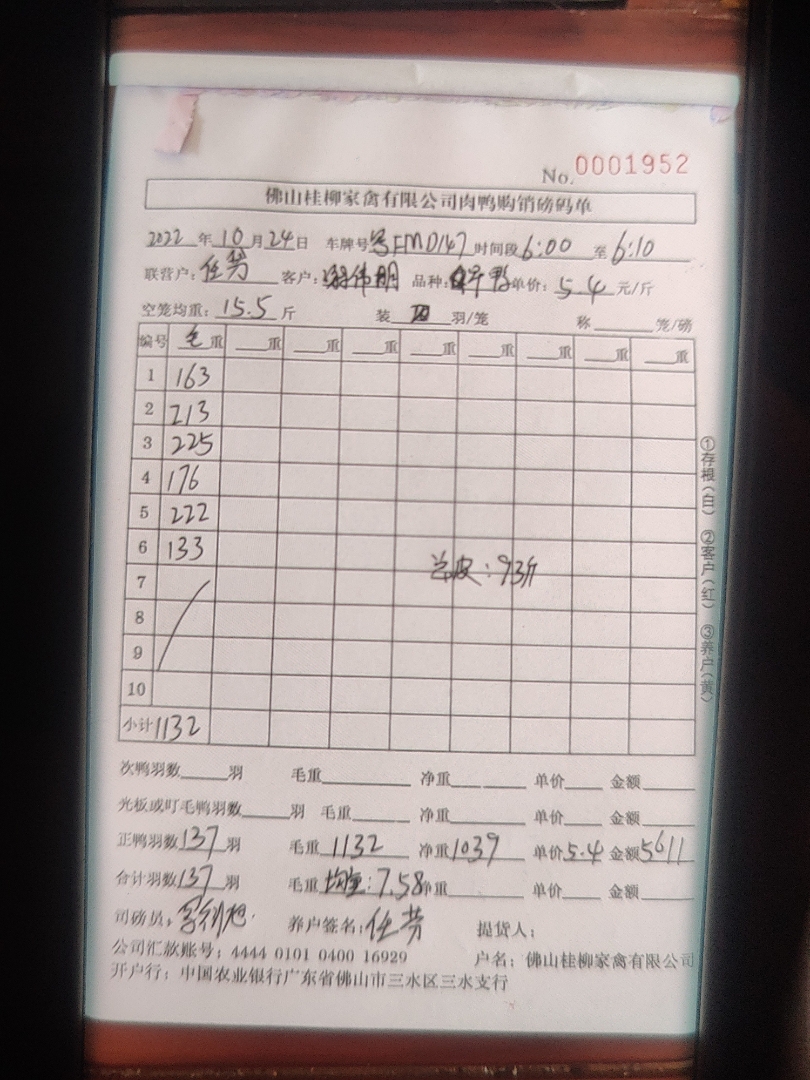 No. 0001952
佛山桂柳家禽有限公司肉鸭购销磅码单
2022 年 10 月 24 日 车牌号 粤FMD147 时间段 6:00 至 6:10
联营户: 任芳 客户: 伟明 品种: 鸭 单价: 5.4 元/斤
空笼均重: 15.5 斤 装 羽/笼 称 笼/磅
编号 毛重 重 重 重 重 重 重 重 重
1 163
2 213
3 225
4 176
5 222
6 133
总皮: 93斤
7
8
9
10
小计 1132
①存根(白) ②客户(红) ③养户(黄)
次鸭羽数 羽 毛重 净重 单价 金额
光板或叮毛鸭羽数 羽 毛重 净重 单价 金额
正鸭羽数 137 羽 毛重 1132 净重 1039 单价 5.4 金额 5611
合计羽数 137 羽 毛重 均重: 7.58 净重 单价 金额
司磅员: 养户签名: 任芳 提货人:
公司汇款账号: 4444 0101 0400 16929 户名: 佛山桂柳家禽有限公司
开户行: 中国农业银行广东省佛山市三水区三水支行